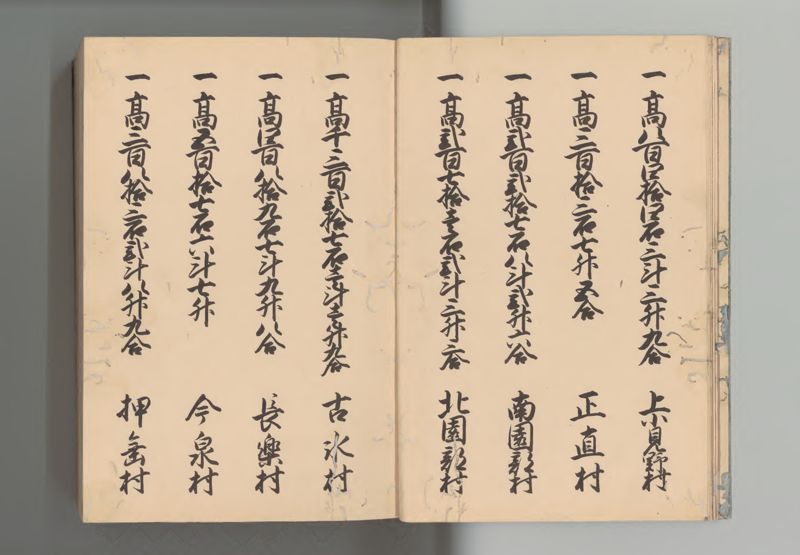 一 高八百四拾四石三斗三升九合 上小貝野村
一 高三百拾二石七升五合 正直村
一 高弐百弐拾七石八斗弐升六合 南園部村
一 高弐百七拾壱石弐斗三升六合 北園部村
一 高千三百弐拾七石壱斗壱升九合 古氷村
一 高四百八拾九石七斗九升八合 長楽村
一 高五百拾七石六斗七升 今泉村
一 高三百八拾三石弐斗八升九合 押畑村